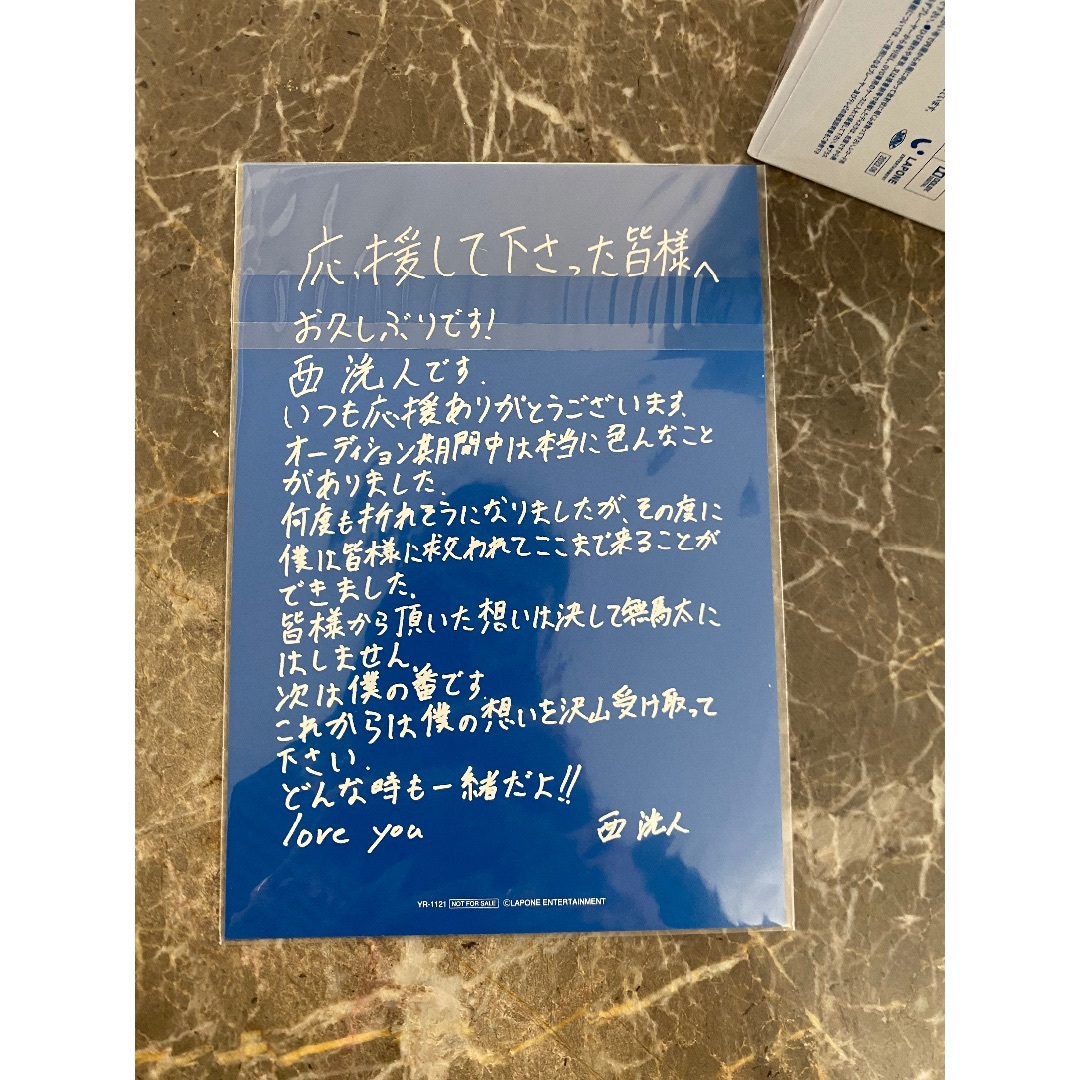 応援して下さった皆様へ
お久しぶりです!
西 洸人です.
いつも応援ありがとうございます.
オーディション期間中は本当に色んなこと
がありました.
何度も折れそうになりましたが、その度に
僕は皆様に救われてここまで来ることが
できました.
皆様から頂いた想いは決して無駄に
はしません.
次は僕の番です.
これからは僕の想いを沢山受け取って
下さい.
どんな時も一緒だよ!!
love you 西 洸人
YR-1121 NOT FOR SALE ©LAPONE ENTERTAINMENT
LAPONE
ENTERTAINMENT